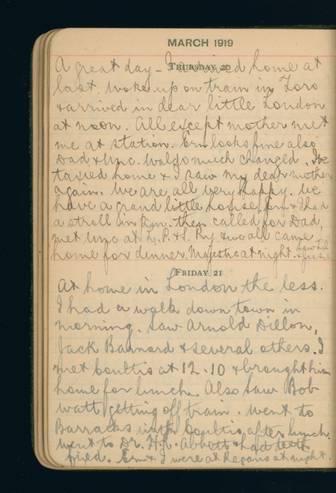 MARCH 1919
THURSDAY 20
A great day - I arrived home at
last. Woke up on train in Toro
& arrived in dear little London
at noon. All except mother met
me at station. Ern looks fine also
Dad & Uno. Walfo much changed. We
taxied home & I saw my dear mother
again. We are all very happy. We
have a grand little house, Ern & I had
a stroll in p.m. then called for Dad,
met Uno at L. P. & S. Ry & we all came
home for dinner. Majestic at night.
FRIDAY 21
At home in London the less.
I had a walk down town in
morning. Saw Arnold Dillon,
Jack Barnard & several others. I
met Coultis at 12.10 & brought him
home for lunch. Also saw Bob
Watt getting off train. Went to
Barracks with Coultis after lunch.
Went to Dr. H. R. Abbott & had teeth
fixed. Ern & I were at at night.